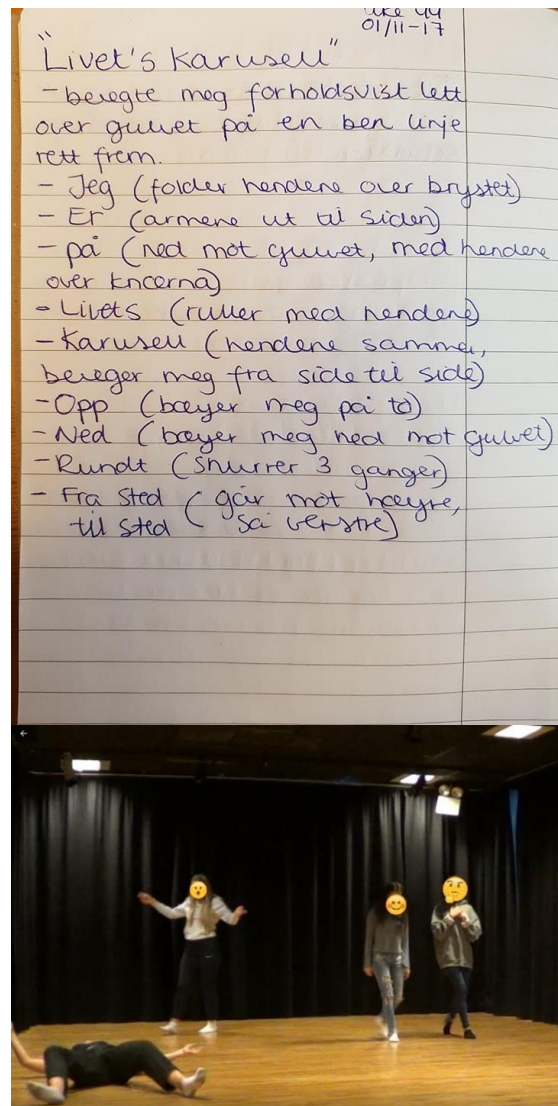 uke 44
01/11-17
"Livet's karusell"
- bevegte meg forholdsvist lett
over gulvet på en ben linje
rett frem.
- Jeg (folder hendene over brystet)
- Er (armene ut til siden)
- på (ned mot gulvet, med hendene
over knærna)
- Livets (ruller med hendene)
- Karusell (hendene sammen,
beveger meg fra side til side)
- Opp (bøyer meg på tå)
- Ned (bøyer meg ned mot gulvet)
- Rundt (snurrer 3 ganger)
- Fra sted (går mot høyre,
til sted så venstre)